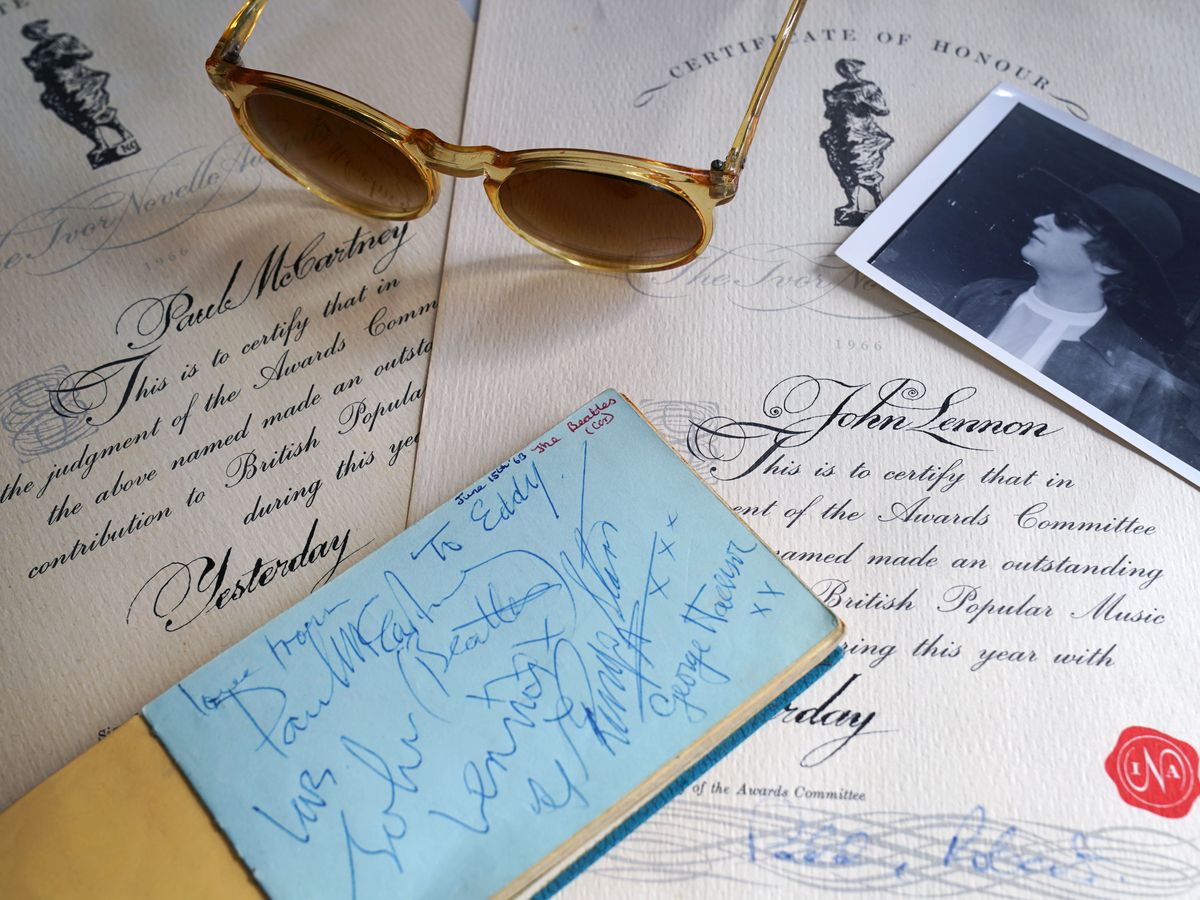 The Ivor Novello Awa
1966
Paul McCartney
This is to certify that in
the judgment of the Awards Comm
the above named made an outsta
contribution to British Popula
during this yea
Yesterday
CERTIFICATE OF HONOUR
The Ivor No
1966
John Lennon
This is to certify that in
ent of the Awards Committee
named made an outstanding
British Popular Music
ring this year with
rday
of the Awards Committee
INA
June 15th '63
The Beatles
To Eddy.
love from
Paul McCartney
(Beatles)
love
John
Lennon
x
Ringo Starr
x x x
George Harrison
x x